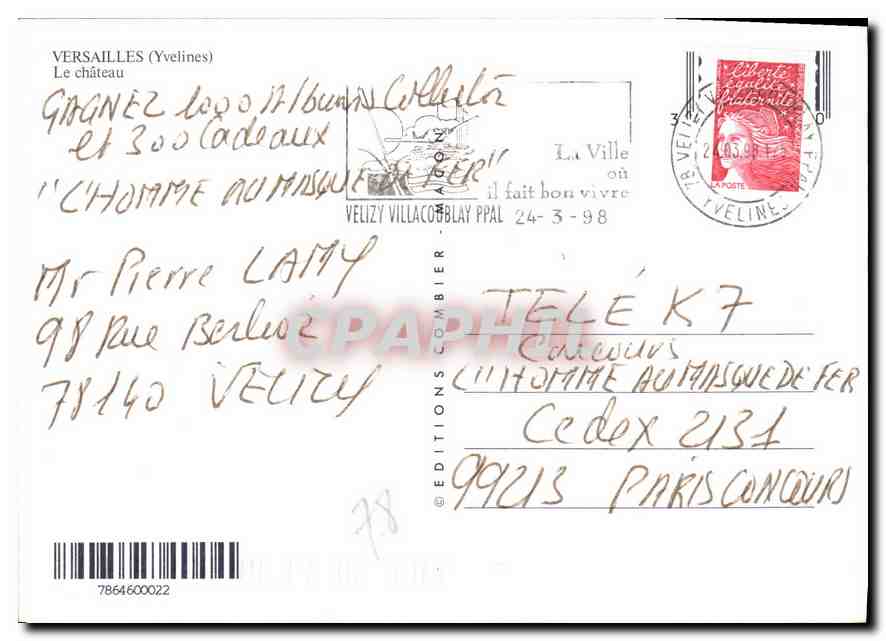 VERSAILLES (Yvelines)
Le château
GAGNEZ 1000 Albums Collector
et 300 Cadeaux
"L'HOMME AU MASQUE DE FER"
Mr Pierre LAMY
98 Rue Berlioz
78140 VELIZY
La Ville
où
il fait bon vivre
VELIZY VILLACOUBLAY PPAL 24-3-98
liberté
égalité
fraternité
LA POSTE
24.03.98
YVELINES
© EDITIONS COMBIER - MACON
CPAPHIL
TELÉ K7
Concours
L"HOMME AU MASQUE DE FER
Cedex 2131
99213 PARIS CONCOURS
78
7864600022